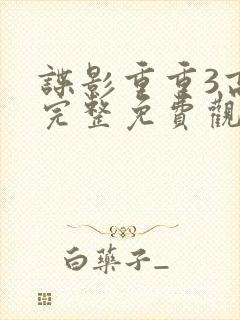 諜影重重3,高
完整免費觀
白藥子_